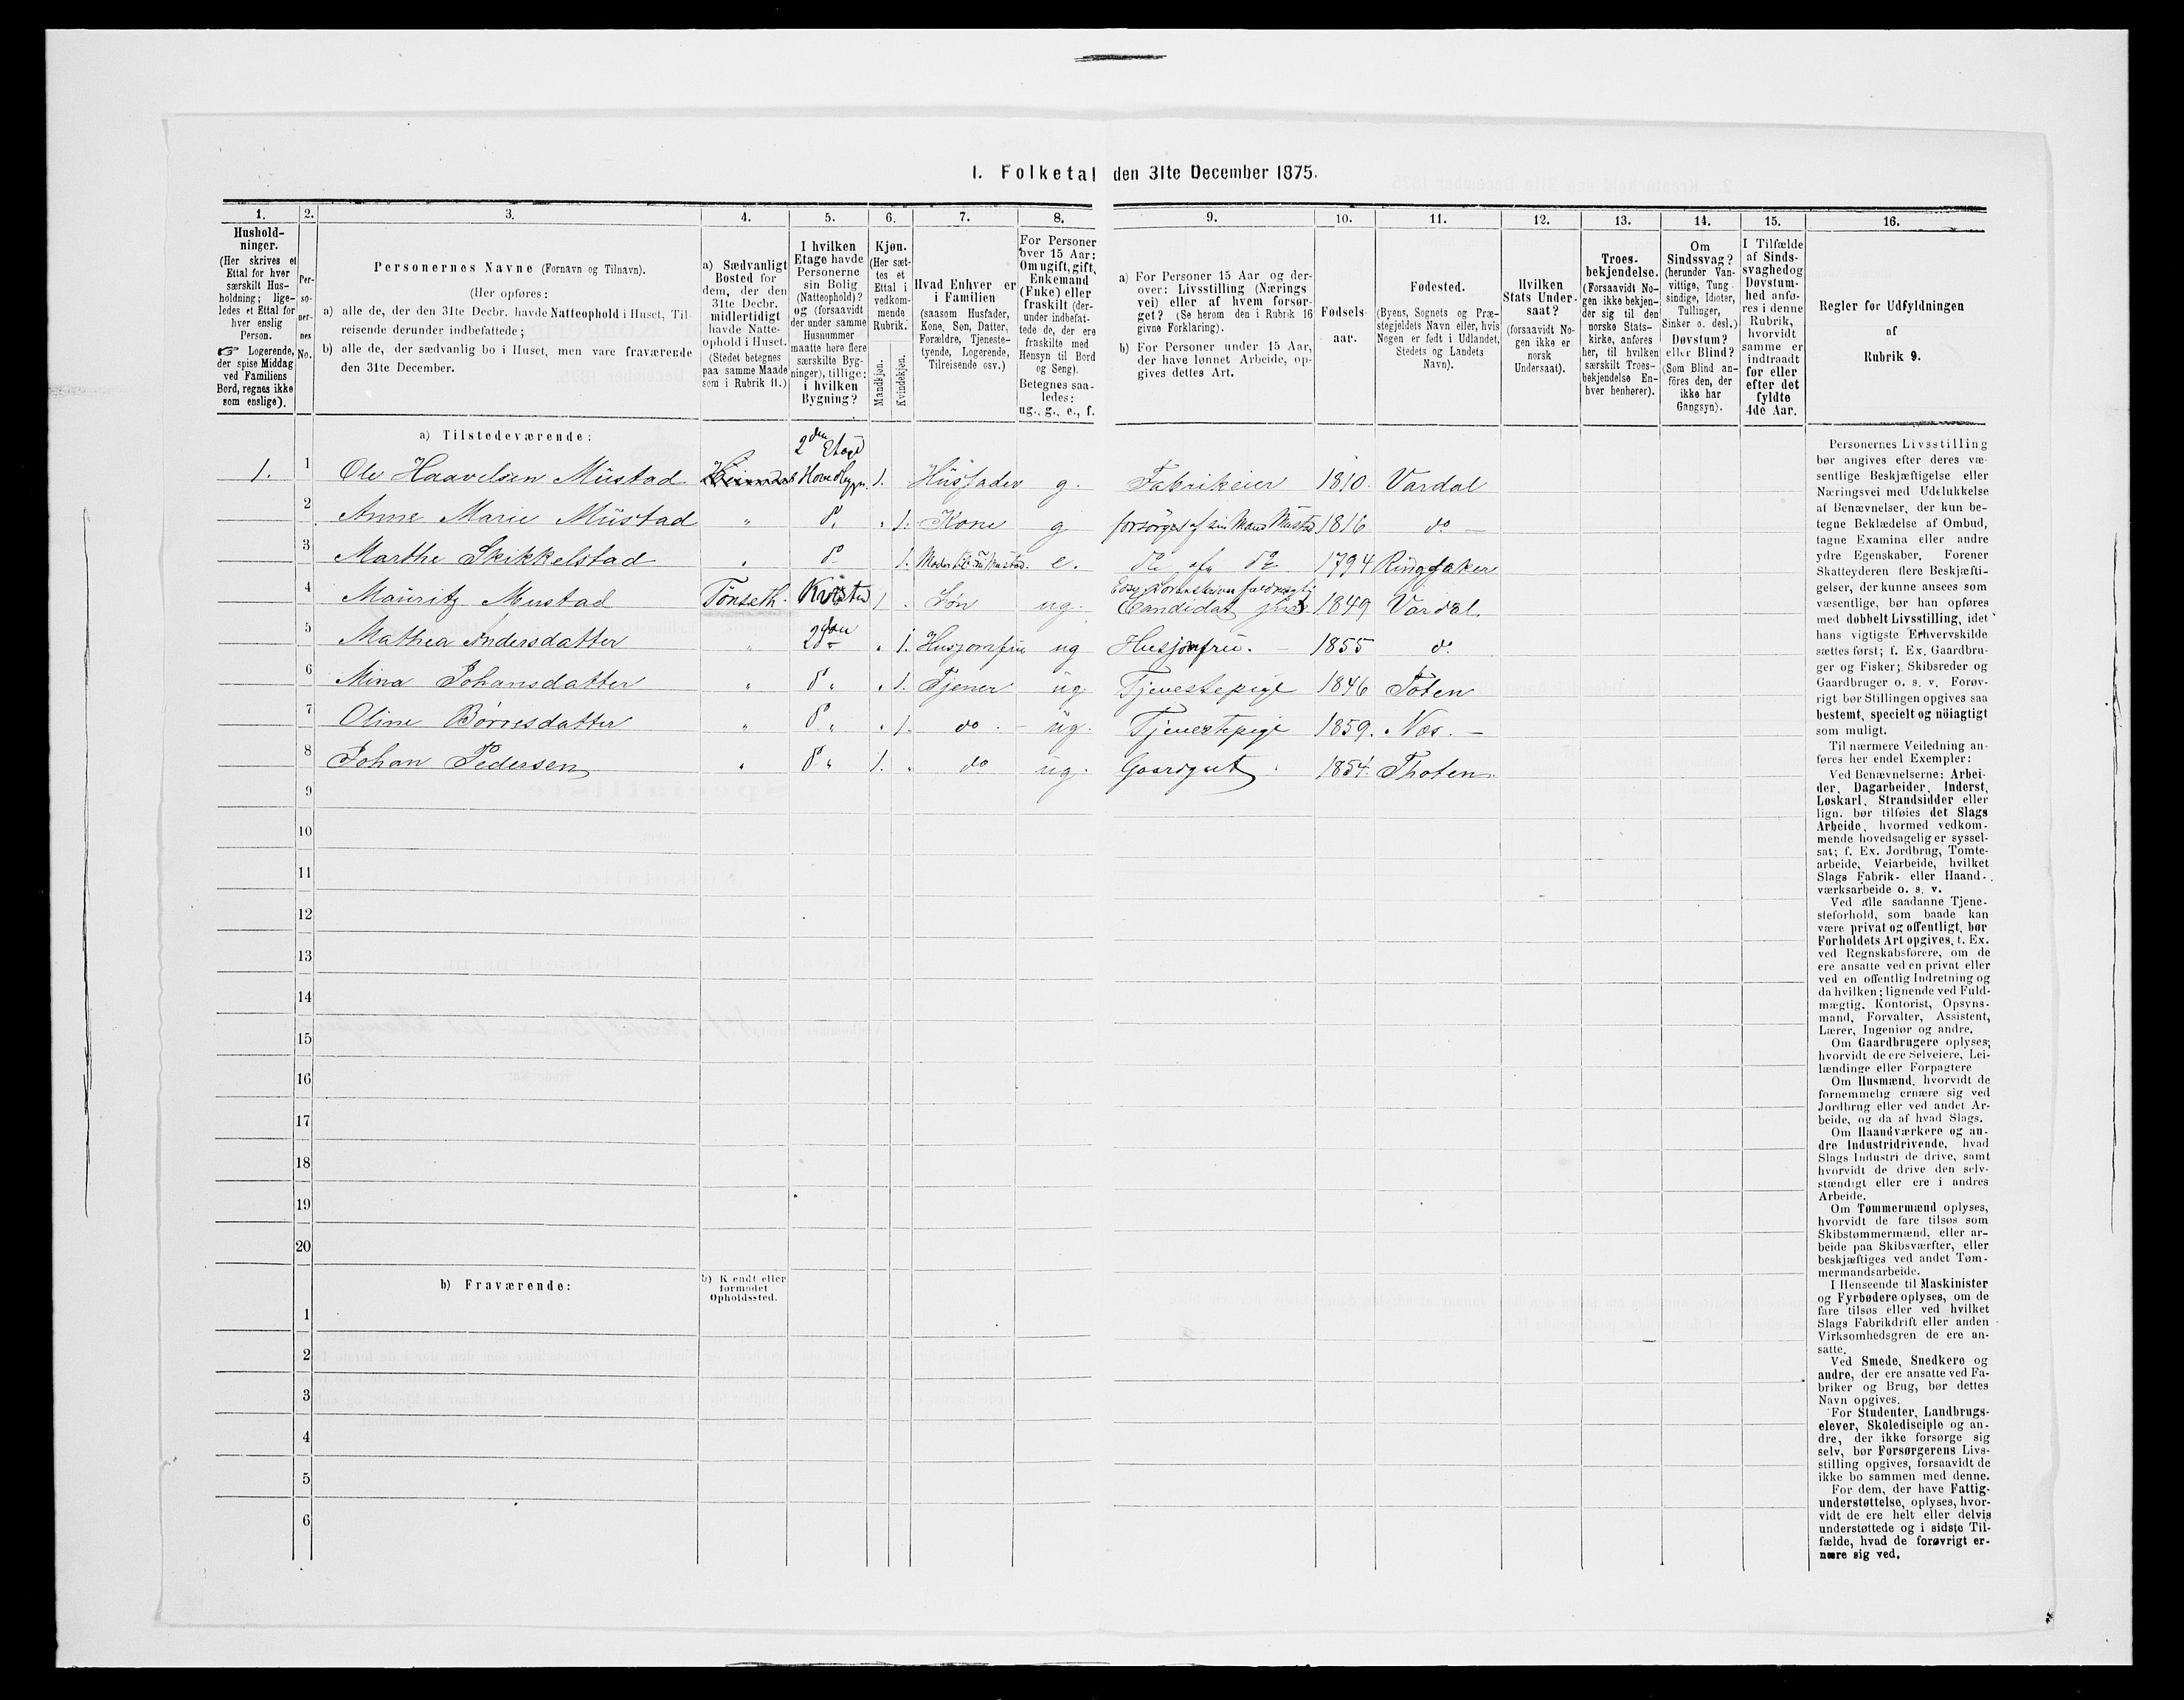 1. Folketal den 31te December 1875.
1. 2. 3. 4. 5. 6. 7. 8. 9. 10. 11. 12. 13. 14. 15. 16.
Hushold-
ninger.
(Her skrives et
Ettal for hver
særskilt Hus-
holdning; lige-
ledes et Ettal for
hver enslig
Person.
☞ Logerende,
der spise Middag
ved Familiens
Bord, regnes ikke
som enslige).
Per-
so-
ner-
nes
No.
Personernes Navne (Fornavn og Tilnavn).
(Her opføres:
a) alle de, der den 31te Decbr. havde Natteophold i Huset, Til-
reisende derunder indbefattede;
b) alle de, der sædvanlig bo i Huset, men vare fraværende
den 31te December.
a) Sædvanligt
Bosted for
dem, der den
31te Decbr.
midlertidigt
havde Natte-
ophold i Huset.
(Stedet betegnes
paa samme Maade
som i Rubrik 11.)
I hvilken
Etage havde
Personerne
sin Bolig
(Natteophold)?
og (forsaavidt
der under samme
Husnummer
maatte høre flere
særskilte Byg-
ninger), tillige:
i hvilken
Bygning?
Kjøn.
(Her sæt-
tes et
Ettal i
vedkom-
mende
Rubrik.
Mandkjøn.
Kvindekjøn.
Hvad Enhver er
i Familien
(saasom Husfader,
Kone, Søn, Datter,
Forældre, Tjeneste-
tyende, Logerende,
Tilreisende osv.)
For Personer
over 15 Aar:
Om ugift, gift,
Enkemand
(Enke) eller
fraskilt (der-
under indbefat-
tede de, der ere
fraskilte med
Hensyn til Bord
og Seng).
Betegnes saa-
ledes:
ug., g., e., f.
a) For Personer 15 Aar og der-
over: Livsstilling (Nærings
vei) eller af hvem forsør-
get? (Se herom den i Rubrik 16
givne Forklaring).
b) For Personer under 15 Aar,
der have lønnet Arbeide, op-
gives dettes Art.
Fødsels-
aar.
Fødested.
(Byens, Sognets og Præ-
stegjeldets Navn eller, hvis
Nogen er født i Udlandet,
Stedets og Landets
Navn).
Hvilken
Stats Under-
saat?
(forsaavidt No-
gen ikke er
norsk
Undersaat).
Troes-
bekjendelse.
(Forsaavidt No-
gen ikke bekjen-
der sig til den
norske Stats-
kirke, anføres
her, til hvilken
særskilt Troes-
bekjendelse En-
hver henhører).
Om
Sindssvag?
(herunder Van-
vittige, Tung-
sindige, Idioter,
Tullinger,
Sinker o. desl.)
Døvstum?
eller Blind?
(Som Blind an-
føres den, der
ikke har
Gangsyn).
I Tilfælde
af Sinds-
svaghed og
Døvstum-
hed anfø-
res i denne
Rubrik,
hvorvidt
samme er
indtraadt
før eller
efter det
fyldte
4de Aar.
Regler for Udfyldningen
af
Rubrik 9.
a) Tilstedeværende:
2den Etage
1. 1 Ole Haavelsen Müstad Hovedbygn. 1. Husfader g. Fabrikeier 1810. Vardal
2 Anne Marie Müstad " do. " 1. Kone g forsørges af sin Mand Müstad 1816 do –
3 Marthe Skikkelstad " do 1. Moder til Fru Mustad. e. do af do 1794 Ringsaker
4 Mauritz Mustad Tönseth. Kvisten 1 . Søn ug. Edsv. Sorenskriverfuldmægtig Candidat jur 1849 Vardal.
5 Mathea Andersdatter " 2den " 1. Husjomfru ug Husjomfru. – 1855 do
6 Mina Johansdatter " do " " 1. Tjener ug. Tjenestepige 1846 Toten
7 Oline Børresdatter " do " " 1. do – ug. Tjenestepige 1859. Næs. –
8 Johan Pedersen " do " 1. " do ug. Gaardsgut 1854. Thoten.
9
10
11
12
13
14
15
16
17
18
19
20
b) Fraværende:
b) Kjendt eller
formodet
Opholdssted.
1
2
3
4
5
6
Personernes Livsstilling
bør angives efter deres væ-
sentlige Beskjæftigelse eller
Næringsvei med Udelukkelse
af Benævnelser, der kun be-
tegne Beklædelse af Ombud,
tagne Examina eller andre
ydre Egenskaber. Forener
Skatteyderen flere Beskjæfti-
gelser, der kunne ansees som
væsentlige, bør han opføres
med dobbelt Livsstilling, idet
hans vigtigste Erhvervskilde
sættes først; f. Ex. Gaardbru-
ger og Fisker; Skibsreder og
Gaardbruger o. s. v. Forøv-
rigt bør Stillingen opgives saa
bestemt, specielt og nöiagtigt
som muligt.
Til nærmere Veiledning an-
føres her endel Exempler:
Ved Benævnelserne: Arbei-
der, Dagarbeider, Inderst,
Løskarl, Strandsidder eller
lign. bør tilføies det Slags
Arbeide, hvormed vedkom-
mende hovedsagelig er syssel-
sat; f. Ex. Jordbrug, Tomte-
arbeide, Veiarbeide, hvilket
Slags Fabrik- eller Haand-
værksarbeide o. s. v.
Ved alle saadanne Tjene-
steforhold, som baade kan
være privat og offentligt, bør
Forholdets Art opgives, t. Ex.
ved Regnskabsførere, om de
ere ansatte ved en privat eller
ved en offentlig Indretning og
da hvilken; lignende ved Fuld-
mægtig, Kontorist, Opsyns-
mand, Forvalter, Assistent,
Lærer, Ingeniør og andre.
Om Gaardbrugere oplyses,
hvorvidt de ere Selveiere, Lei-
lændinge eller Forpagtere
Om Husmænd, hvorvidt de
fornemmelig ernære sig ved
Jordbrug eller ved andet Ar-
beide, og da af hvad Slags.
Om Haandværkere og an-
dre Industridrivende, hvad
Slags Industri de drive, samt
hvorvidt de drive den selv-
stændigt eller ere i andres
Arbeide.
Om Tømmermænd oplyses,
hvorvidt de fare tilsøs som
Skibstømmermænd, eller ar-
beide paa Skibsværfter, eller
beskjæftiges ved andet Tøm-
mermandsarbeide.
I Henseende til Maskinister
og Fyrbødere oplyses, om de
fare tilsøs eller ved hvilket
Slags Fabrikdrift eller anden
Virksomhedsgren de ere an-
satte.
Ved Smede, Snedkere og
andre, der ere ansatte ved Fa-
briker og Brug, bør dettes
Navn opgives.
For Studenter, Landbrugs-
elever, Skoledisciple og an-
dre, der ikke forsørge sig
selv, bør Forsørgerens Livs-
stilling opgives, forsaavidt de
ikke bo sammen med denne.
For dem, der have Fattig-
understøttelse, oplyses, hvor-
vidt de ere helt eller delvis
understøttede og i sidste Til-
fælde, hvad de forøvrigt er-
nære sig ved.